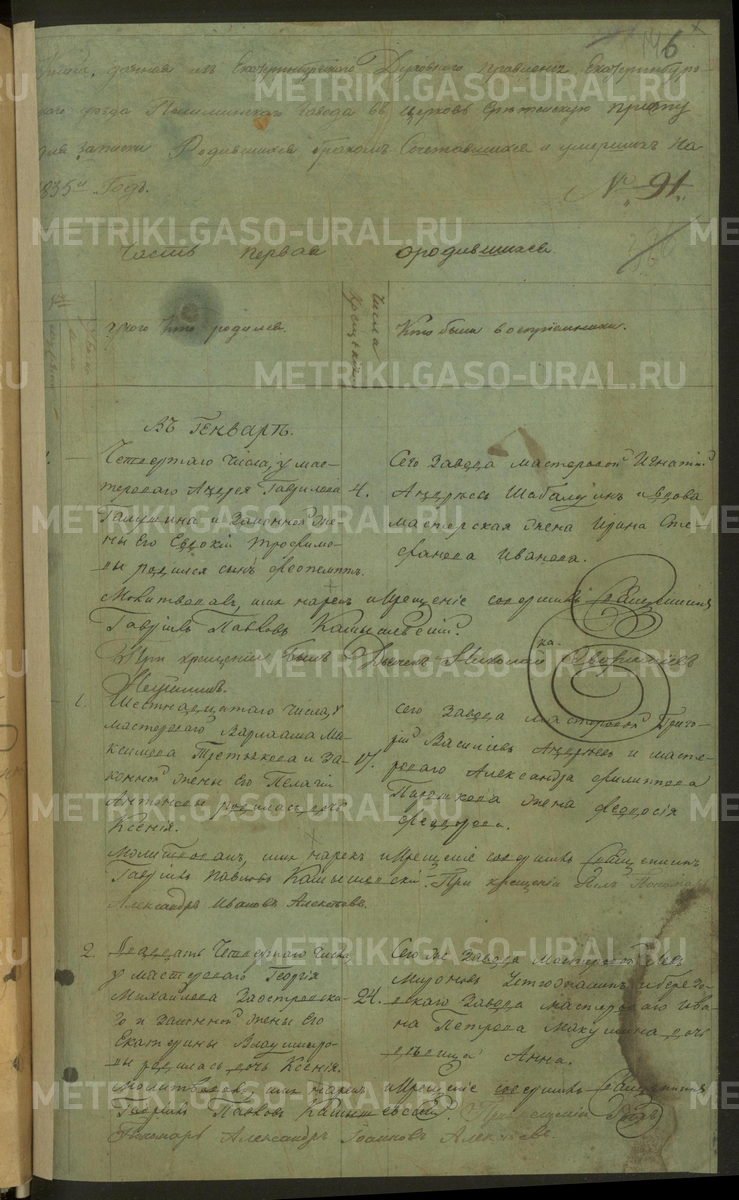 6
данная изъ Екатеринбургскаго Духовнаго правления Екатеринбург-
скаго уезда завода въ церковь Сретенскую причту
для записки Родившихся браком Сочетавшихся и умерших На
1835й Годъ.
№ 91.
Часть первая
ородившихся
у кого кто родился.
Числа крещения
Кто были восприемники.
Въ Генваре.
Четвертаго числа, у мас-
тероваго Андрея Гаврилова
Галушина и Законной же-
ны Его Евдокии Трофимо-
вы родился сынъ Феопемптъ.
4.
Сего Завода мастеровой Игнатий
Андреевъ Шабалдинъ и вдова
мастерская жена Ирина Сте-
фанова Иванова.
Молитвовалъ, имя нарекъ и Крещение совершилъ Священникъ
Гавриилъ Павловъ Камышевский.
При крещении былъ Дьячекъ Николай
1.
Шестнадцатаго числа, у
мастероваго Варлаама Ма-
ксимова Третьякова и За-
конной жены Его Пелагии
Антоновы родилась дочь
Ксения.
17.
сего Завода мастеровой Григо-
рий Васильевъ Андреевъ и масте-
роваго Александра Филиппова
жена Феодосия
Феодорова.
Молитвовалъ, имя нарекъ и Крещение совершилъ Священникъ
Гавриилъ Павловъ Камышевский. При крещении былъ Пономарь
Александръ Ивановъ Алексеевъ.
2.
Двадцать Четвертаго числа,
у мастероваго Георгия
Михайлова Заостровска-
го и Законной жены Его
Екатерины Владимиро-
вы родилась дочь Ксения.
24.
Сего же Завода Мастеровой
Мироновъ Устюжанинъ и Березо-
вскаго Завода мастероваго Ива-
на Петрова Макушина дочь
девица Анна.
Молитвовалъ, имя нарекъ и Крещение совершилъ Священникъ
Гавриилъ Павловъ Камышевский. При крещении былъ
Пономарь Александръ Иоанновъ Алексеевъ.
METRIKI.GASO-URAL.RU